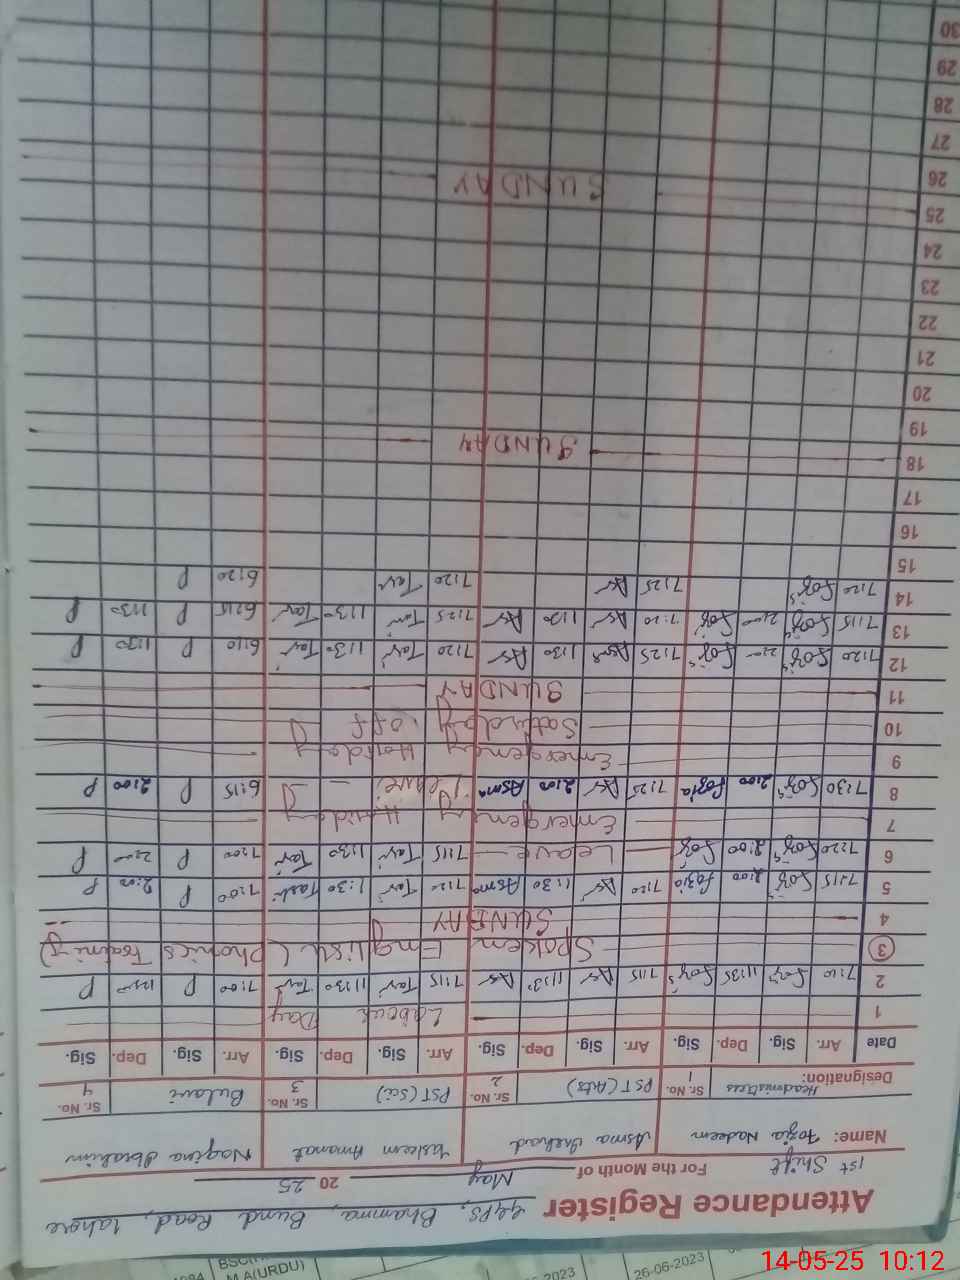 Attendance Register GGPS, Bhamma, Bund Road, Lahore
1st Shift For the Month of May 20 25
Name: Fozia Nadeem Asma Irshad Tasleem Amanat Nagina Ibrahim
Designation: Headmistress Sr. No. 1 PST (Arts) Sr. No. 2 PST (Sci) Sr. No. 3 Bulavi Sr. No. 4
Date Arr. Sig. Dep. Sig. Arr. Sig. Dep. Sig. Arr. Sig. Dep. Sig. Arr. Sig. Dep. Sig.
1 Labour Day
2 7:10 Fozia 11:35 Fozia 7:15 As 11:30 As 7:15 Tas 11:30 Tas 7:00 P P
3 Spoken English (Phonics Training)
4 SUNDAY
5 7:15 Fozia 2:00 Fozia 7:20 As 1:30 Asma 7:20 Tas 1:30 Tas 7:00 P 2:00 P
6 7:20 Fozia 2:00 Fozia Leave 7:15 Tas 1:30 Tas 7:00 P 2:00 P
7 Emergency Holiday
8 7:30 Fozia 2:00 Fozia 7:25 As 2:00 Asma Leave 6:15 P 2:00 P
9 Emergency Holiday
10 Saturday off
11 SUNDAY
12 7:20 Fozia 2:00 Fozia 7:25 Asma 1:30 As 7:20 Tas 11:30 Tas 6:10 P 1:30 P
13 7:15 Fozia 2:00 Fozia 7:20 As 11:30 As 7:25 Tas 11:30 Tas 6:15 P 1:30 P
14 7:20 Fozia 7:25 As 7:20 Tas 6:20 P
15
16
17
18 SUNDAY
19
20
21
22
23
24
25 SUNDAY
26
27
28
29
30
BSC(
M.A(URDU)
2023
26-06-2023
14-05-25 10:12